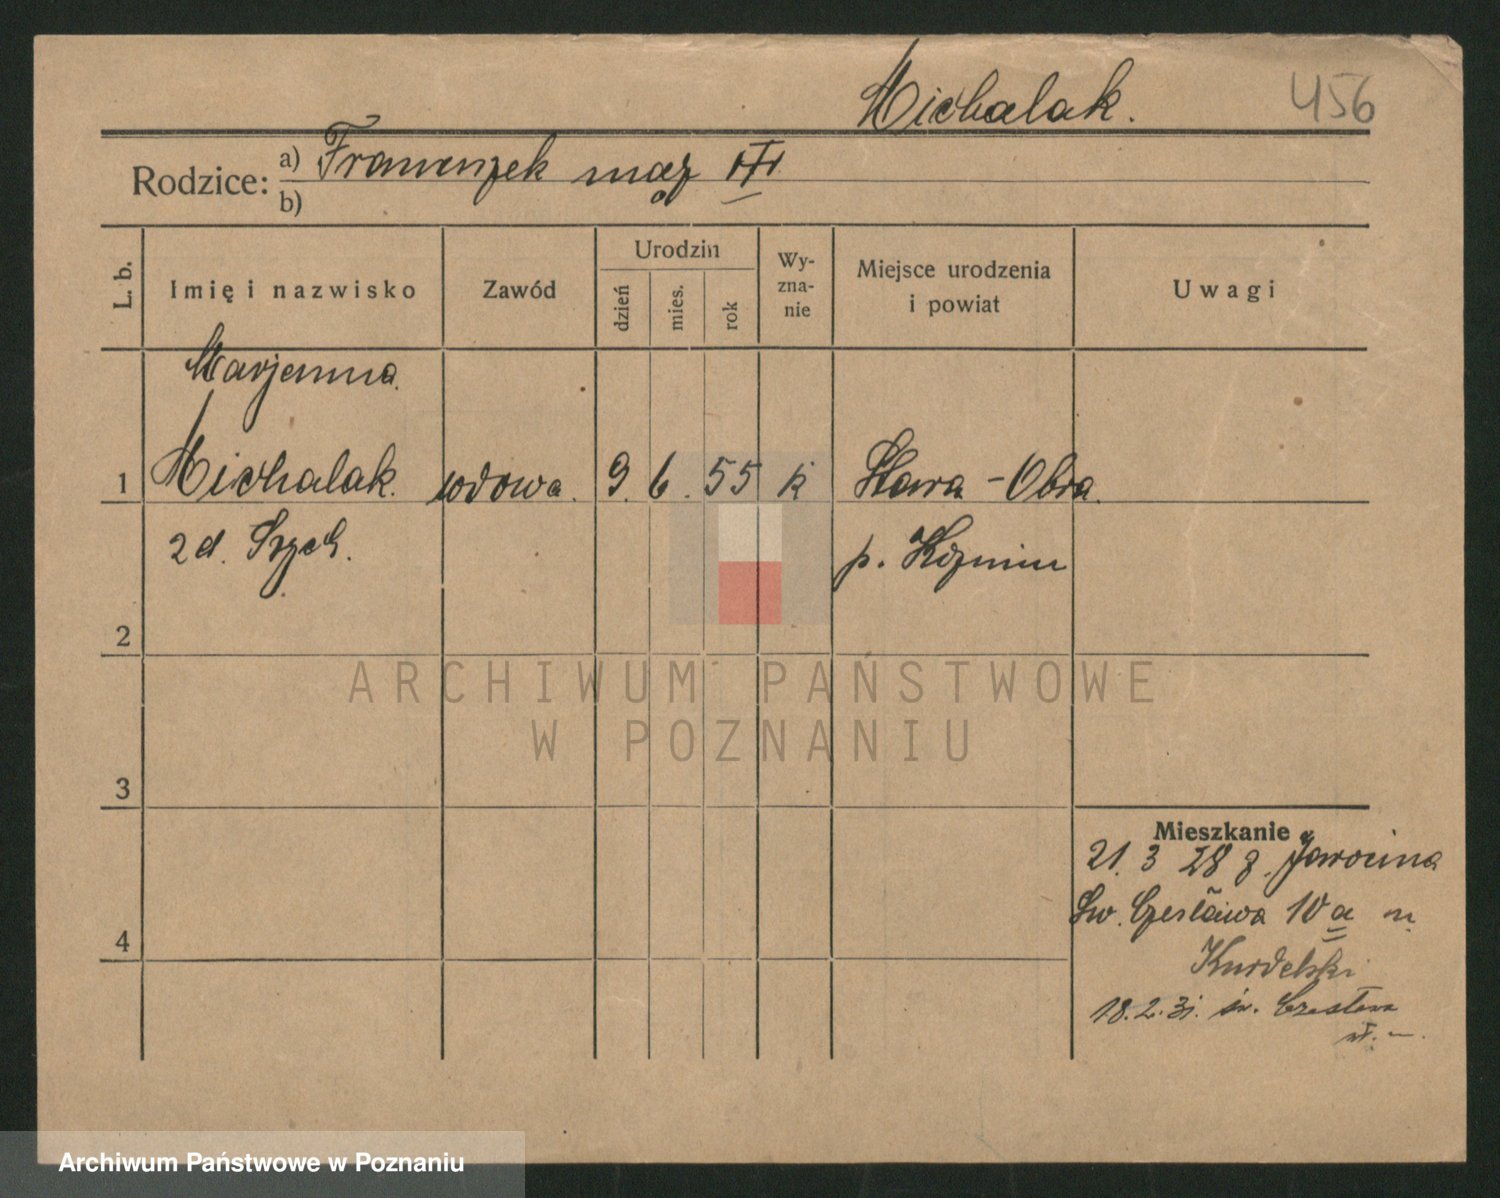 Michalak. 456
Rodzice: a) Franciszek mąż
b)
L. b. Imię i nazwisko Zawód Urodzin dzień mies. rok Wy-zna-nie Miejsce urodzenia i powiat Uwagi
Marjanna
1 Michalak. wdowa. 9. 6. 55 k Stara-Obra.
zd. Szych. p. Koźmin
2
3
4
Mieszkanie
21. 3 28 z Jarocina
Św. Czesława 10 a u
Kurdelski
18.2.31. św. Czesława
ARCHIWUM PAŃSTWOWE
W POZNANIU
Archiwum Państwowe w Poznaniu